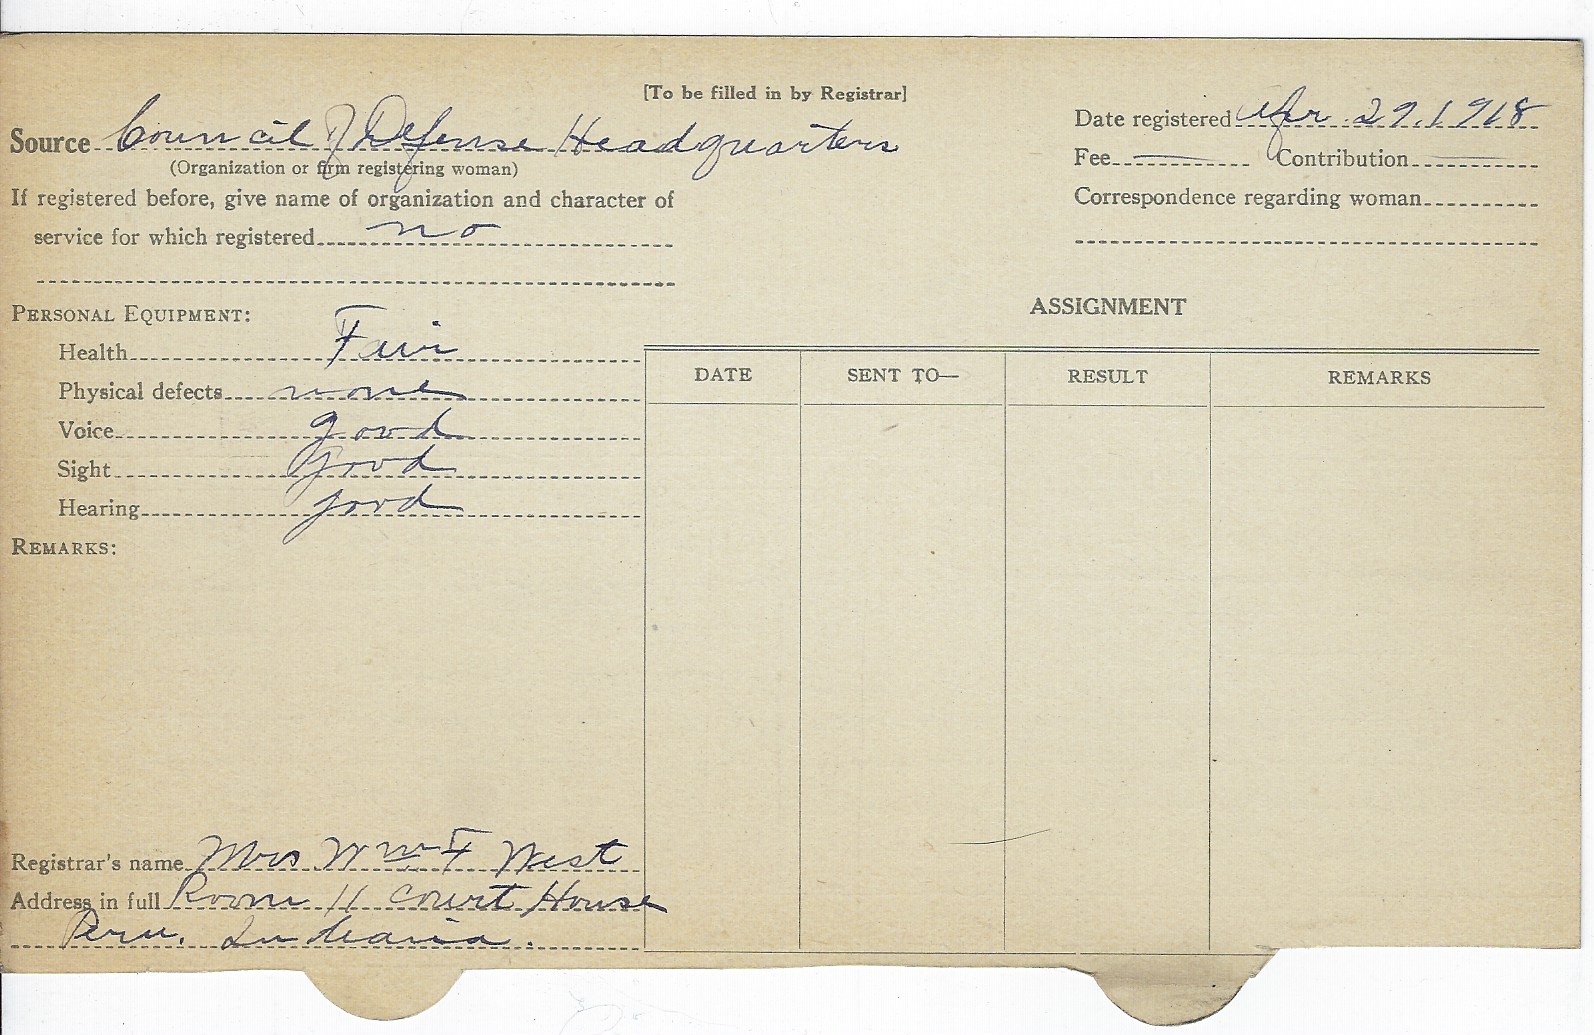 [To be filled in by Registrar]
Source Council of Defense Headquarters
(Organization or firm registering woman)
If registered before, give name of organization and character of
service for which registered no
Date registered Apr 29. 1918
Fee — Contribution —
Correspondence regarding woman
PERSONAL EQUIPMENT:
Health Fair
Physical defects none
Voice good
Sight good
Hearing good
REMARKS:
ASSIGNMENT
DATE SENT TO— RESULT REMARKS
Registrar's name Mrs. Wm F West
Address in full Room 11 Court House
Peru. Indiana.